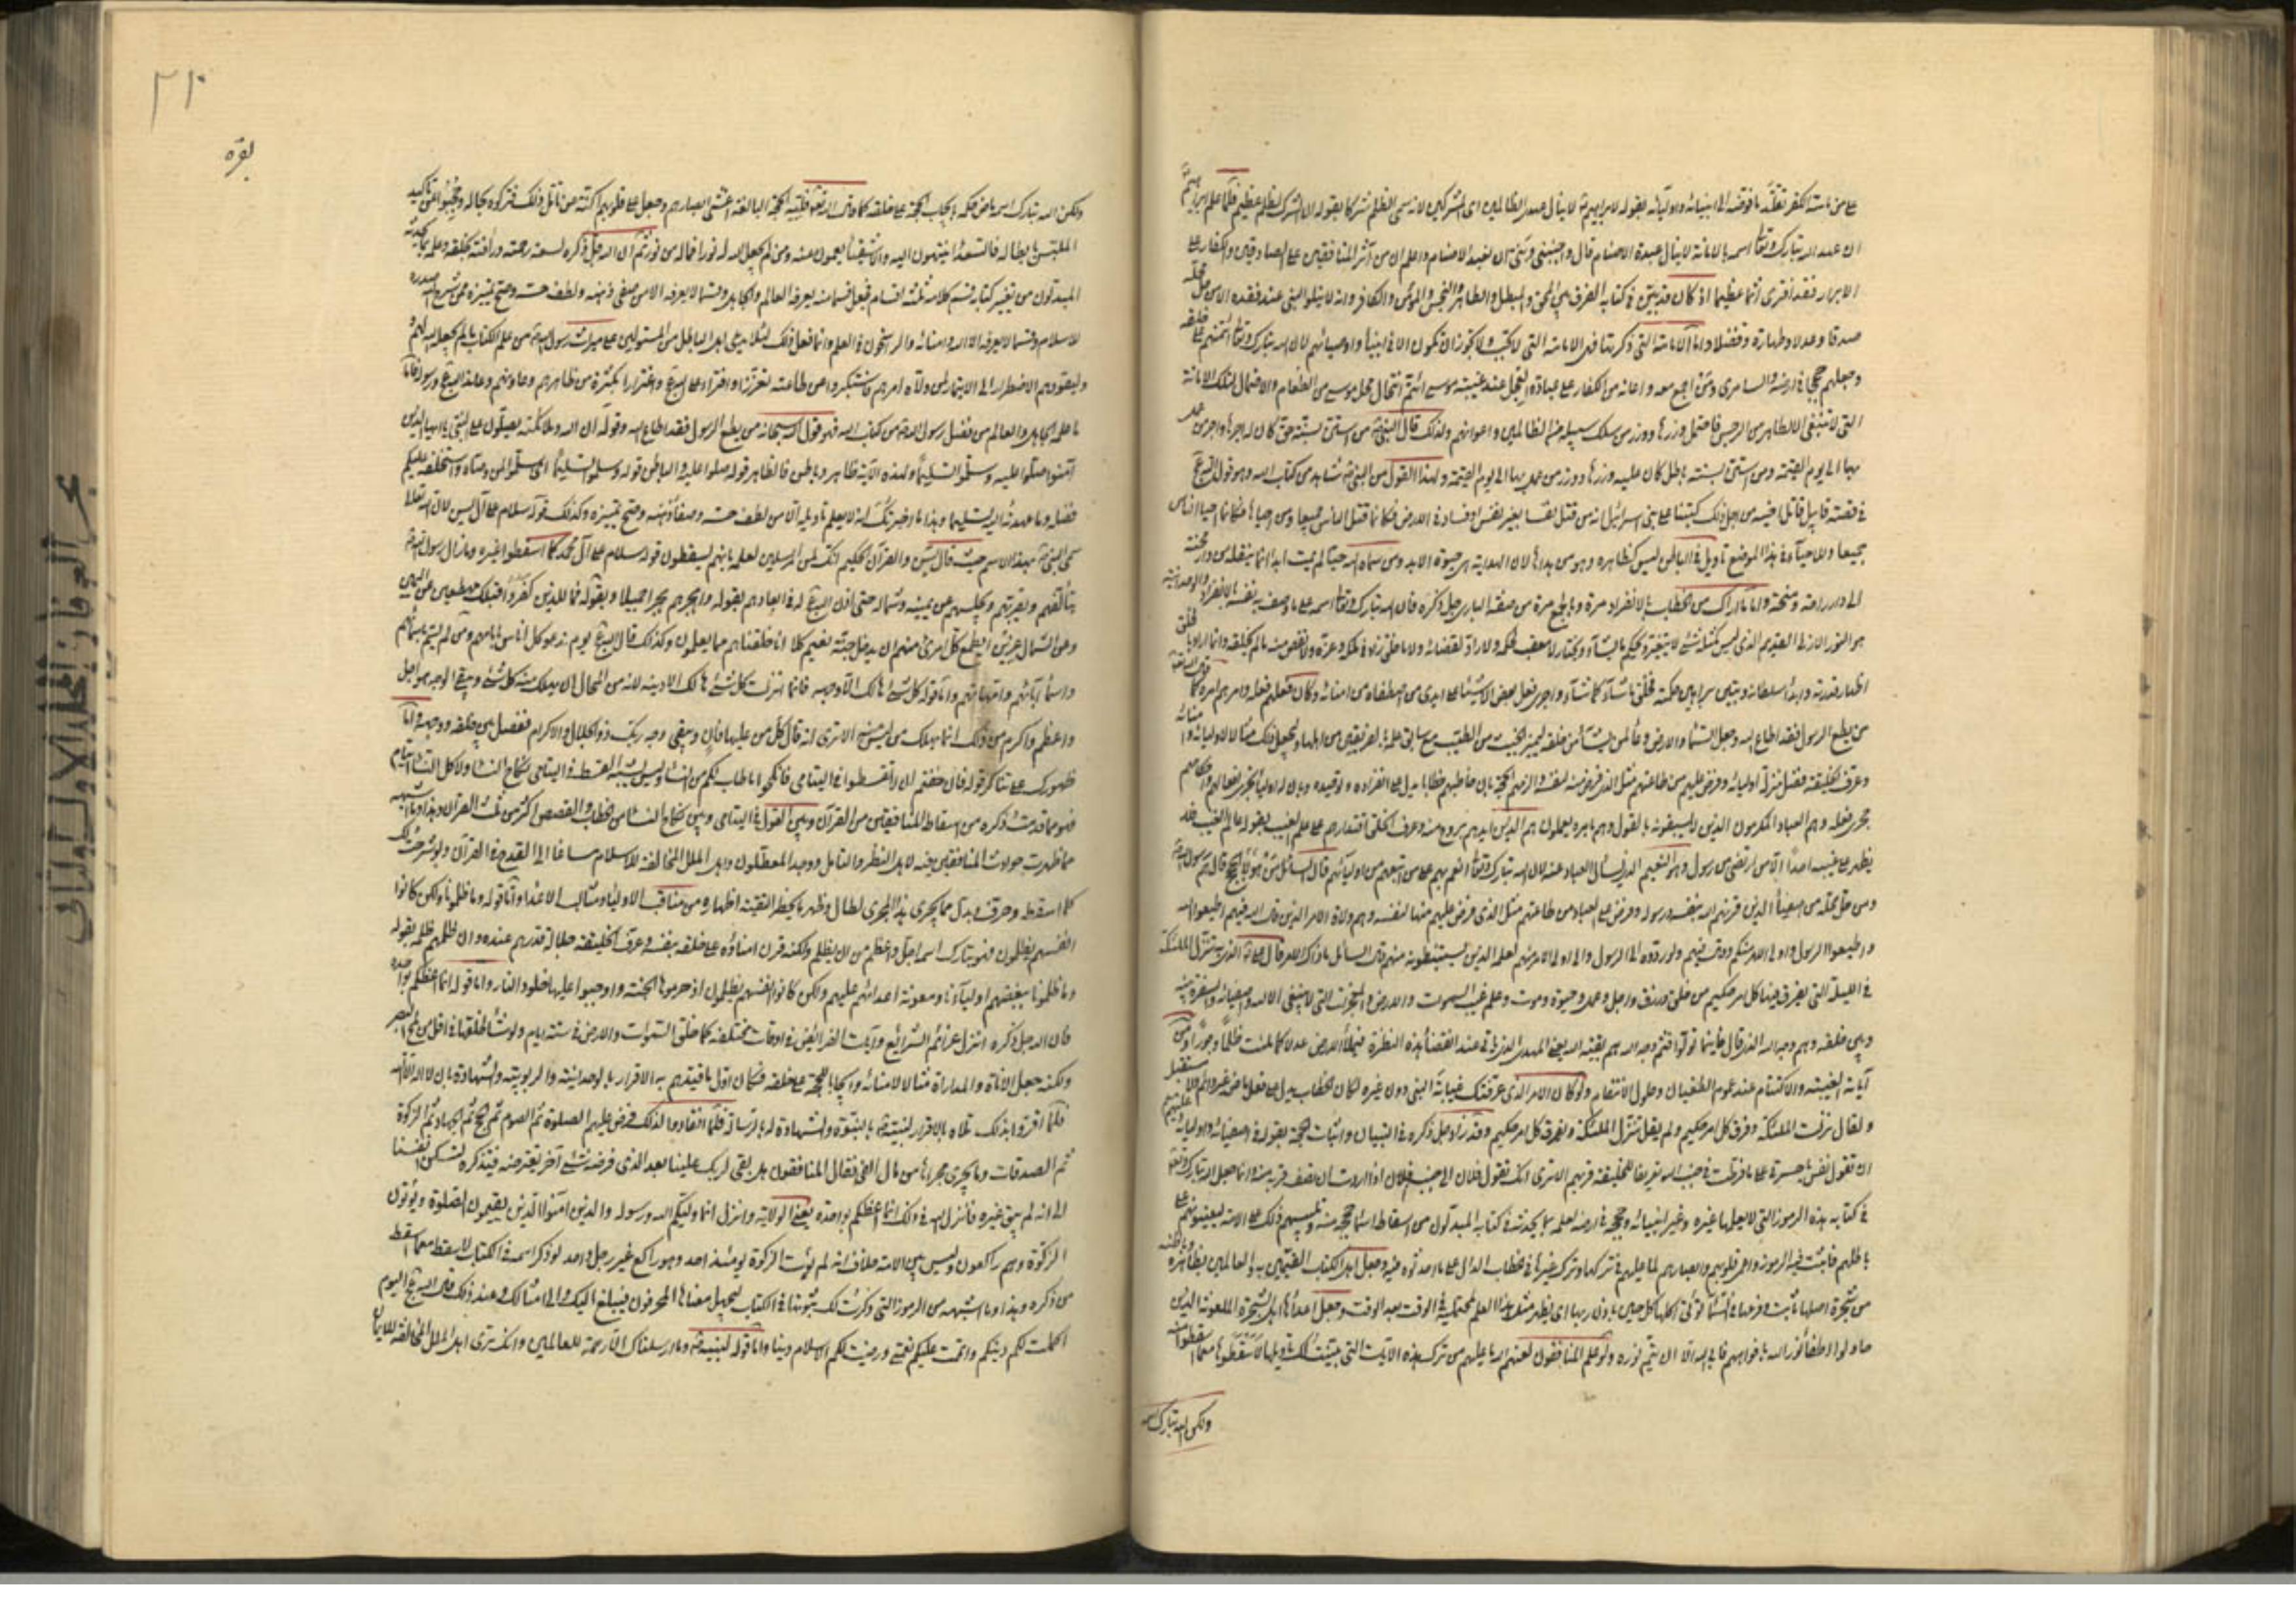 على من ماسته الكفر تقلّد ما فوضه الى انبيائه واوليائه بقوله لابراهيم لا ينال عهدى الظالمين اى المشركين لانه سمى الظلم شركا بقوله ان الشرك لظلم عظيم فلما علم ابراهيم
ان عهد الله تبارك وتعالى اسمه بالامامة لا ينال عبدة الاصنام قال واجنبنى وبنى ان نعبد الاصنام واعلم ان من آثر المنافقين على الصادقين والكفار على
الابرار فقد افترى اثما عظيما اذ كان قد بين فى كتابه الفرق بين المحق والمبطل والطاهر والنجس والمؤمن والكافر وانه لا يتلو النبى عند فقده الا من حل محله
صدقا وعدلا وطهارة وفضلا واما الامانة التى ذكرتها فهى الامانة التى لا تجب ولا يجوز ان تكون الا فى انبياء واوصيائهم لان الله تبارك وتعالى ائتمنهم على خلقه
وجعلهم حججا فى ارضه والسامرى ومن اجمع معه واعانه من الكفار على عبادة العجل عند غيبة موسى ما تم انتحال محل موسى من الطغام والاحتمال لتلك الامانة
التى لا تنبغى الا لطاهر من الرجس فاحتمل وزرها ووزر من سلك سبيله من الظالمين واعوانهم ولذلك قال النبى من استن بسنة حق كان له اجرها واجر من عمل
بها الى يوم القيمة ومن استن بسنة باطل كان عليه وزرها ووزر من عمل بها الى يوم القيمة ولهذا القول من النبى شاهد من كتاب الله وهو قول الله
فى قصة قابيل قاتل اخيه من اجل ذلك كتبنا على بنى اسرائيل انه من قتل نفسا بغير نفس او فساد فى الارض فكانما قتل الناس جميعا ومن احياها فكانما احيا الناس
جميعا وللاحياء فى هذا الموضع تأويل فى الباطن ليس كظاهره وهو من هداها لان الهداية هى حيوة الابد ومن سماه الله حيا لم يمت ابدا انما ينقله من دار محنة
الى دار راحة ومنحة واما ما اراك من الخطاب بالانفراد مرة وبالجمع مرة من صفة البارى جل ذكره فان الله تبارك وتعالى اسمه على ما وصف به نفسه بالانفراد والوحدانية
هو النور الازلى القديم الذى ليس كمثله شئ لا يتغير ويحكم ما يشاء ويختار لا معقب لحكمه ولا راد لقضائه ولا ما خلق زاد فى ملكه وعزه ولا نقص منه ما لم يخلقه وانما اراد بالخلق
اظهار قدرته وابداء سلطانه وتبيين براهين حكمته فخلق ما شاء كما شاء واجرى فعل بعض الاشياء على ايدى من اصطفاه من امنائه وكان فعلهم فعله وامرهم امره كما قال
من يطع الرسول فقد اطاع الله وجعل السماء والارض وعاء لمن يشاء من خلقه ليميز الخبيث من الطيب مع سابق علمه بالفريقين من اهلها وليجعل ذلك مثالا لاوليائه وامنائه
وعرف الخليقة فضل منزلة اوليائه وفرض عليهم من طاعتهم مثل الذى فرض منه لنفسه والزمهم الحجة بان خاطبهم خطابا يدل على انفراده وتوحيده وبان له اولياء تجرى افعالهم واحكامهم
مجرى فعله وهم العباد المكرمون الذين لا يسبقونه بالقول وهم بامره يعملون هم الذين ايدهم بروح منه وعرف الخلق اقتدارهم على علم الغيب بقوله عالم الغيب فلا
يظهر على غيبه احدا الا من ارتضى من رسول وهم النعيم الذى يسأل العباد عنه لان الله تبارك وتعالى انعم بهم على من اتبعهم من اوليائهم قال السائل من هؤلاء الحجج قال هم رسول الله
ومن حل محله من اصفياء الذين قرنهم الله بنفسه ورسوله وفرض على العباد من طاعتهم مثل الذى فرض عليهم منها لنفسه وهم ولاة الامر الذين قال الله فيهم اطيعوا الله
واطيعوا الرسول واولى الامر منكم وقال فيهم ولو ردوه الى الرسول والى اولى الامر منهم لعلمه الذين يستنبطونه منهم قال السائل ما ذاك الامر قال الذى به تنزل الملئكة
فى الليلة التى يفرق فيها كل امر حكيم من خلق ورزق واجل وعمل وحيوة وموت وعلم غيب السموات والارض والمعجزات التى لا تنبغى الا لله واصفيائه والسفرة بينه
وبين خلقه وهم وجه الله الذى قال فاينما تولوا فثم وجه الله هم بقية الله يعنى المهدى الذى يأتى عند انقضاء هذه النظرة فيملأ الارض عدلا كما ملئت ظلما وجورا ومن
آياته الغيبة والاكتتام عند عموم الطغيان وحلول الانتقام ولو كان الامر الذى عرفتك نبأه للنبى دون غيره لكان الخطاب يدل على فعل ماض غير دائم ولا مستقبل
ولقال نزلت الملئكة وفرق كل امر حكيم ولم يقل تنزل الملئكة ويفرق كل امر حكيم وقد زاد جل ذكره فى التبيان واثبات الحجة بقوله فى اصفيائه واوليائه عليهم السلام
ان تقول نفس يا حسرتى على ما فرطت فى جنب الله تعريفا للخليقة قربهم الا ترى انك تقول فلان الى جنب فلان اذا اردت ان تصف قربه منه وانما جعل الله تبارك وتعالى
فى كتابه هذه الرموز التى لا يعلمها غيره وغير انبيائه وحججه فى ارضه لعلمه بما يحدثه فى كتابه المبدلون من اسقاط اسماء حججه منه وتلبيسهم ذلك على الامة ليعينوهم على
باطلهم فاثبت فيه الرموز واعمى قلوبهم وابصارهم لما عليهم فى تركها وترك غيرها من الخطاب الدال على ما احدثوه فيه وجعل اهل الكتاب المقيمين به والعالمين بظاهره وباطنه
من شجرة اصلها ثابت وفرعها فى السماء تؤتى اكلها كل حين باذن ربها اى يظهر مثل هذا العلم لمحتمليه فى الوقت بعد الوقت وجعل اعداءها اهل الشجرة الملعونة الذين
حاولوا اطفاء نور الله بافواههم فابى الله الا ان يتم نوره ولو علم المنافقون لعنهم الله ما عليهم من ترك هذه الآيات التى بينت لك تأويلها لاسقطوها مع ما اسقطوا منه
ولكن الله تبارك اسمه
٣١٠
بقره
ولكن الله تبارك اسمه ماض حكمه بايجاب الحجة على خلقه كما قال الله تعالى فلله الحجة البالغة اغشى ابصارهم وجعل على قلوبهم اكنة عن تأمل ذلك فتركوه بحاله وحجبوا عن تأكيد
الملتبس بابطاله فالسعداء ينتبهون اليه والاشقياء يعمون عنه ومن لم يجعل الله له نورا فما له من نور ثم ان الله جل ذكره لسعة رحمته ورأفته بخلقه وعلمه بما يحدثه
المبدلون من تغيير كتابه قسم كلامه ثلثة اقسام فجعل قسما منه يعرفه العالم والجاهل وقسما لا يعرفه الا من صفى ذهنه ولطف حسه وصح تمييزه ممن شرح الله صدره
للاسلام وقسما لا يعرفه الا الله وامنائه والراسخون فى العلم وانما فعل ذلك لئلا يدعى اهل الباطل من المستولين على ميراث رسول الله من علم الكتاب ما لم يجعله الله لهم
وليقودهم الاضطرار الى الايتمار لمن ولاه امرهم فاستكبروا عن طاعته تعززا وافتراء على الله واغترارا بكثرة من ظاهرهم وعاونهم وعاند الله ورسوله فاما
ما علمه الجاهل والعالم من فضل رسول الله من كتاب الله فهو قول الله سبحانه من يطع الرسول فقد اطاع الله وقوله ان الله وملائكته يصلون على النبى يا ايها الذين
آمنوا صلوا عليه وسلموا تسليما ولهذه الآية ظاهر وباطن فالظاهر قوله صلوا عليه والباطن قوله وسلموا تسليما اى سلموا لمن وصاه واستخلفه عليكم
فضله وما عهد به اليه تسليما وهذا ما اخبرتك انه لا يعلم تأويله الا من لطف حسه وصفا ذهنه وصح تمييزه وكذلك قوله سلام على آل يس لان الله تعالى
سمى النبى بهذا الاسم حيث قال يس والقرآن الحكيم انك لمن المرسلين لعلمه بانهم يسقطون قوله سلام على آل محمد كما اسقطوا غيره وما زال رسول الله
يتألفهم ويقربهم ويجلسهم عن يمينه وشماله حتى اذن الله له فى ابعادهم بقوله واهجرهم هجرا جميلا وبقوله فما للذين كفروا قبلك مهطعين عن اليمين
وعن الشمال عزين ايطمع كل امرئ منهم ان يدخل جنة نعيم كلا انا خلقناهم مما يعلمون وكذلك قال الله يوم ندعو كل اناس بامامهم ولم يسم باسمائهم
واسماء آبائهم وامهاتهم واما قوله كل شئ هالك الا وجهه فانما انزلت كل شئ هالك الا دينه لانه من المحال ان يهلك منه كل شئ ويبقى الوجه هو اجل
واعظم واكرم من ذلك انما يهلك من ليس منه الا ترى انه قال كل من عليها فان ويبقى وجه ربك ذو الجلال والاكرام ففصل بين خلقه ووجهه واما
ظهورك على تناكر قوله فان خفتم ان لا تقسطوا فى اليتامى فانكحوا ما طاب لكم من النساء وليس يشبه القسط فى اليتامى نكاح النساء ولا كل النساء ايتام
فهو مما قدمت ذكره من اسقاط المنافقين من القرآن وبين القول فى اليتامى وبين نكاح النساء من الخطاب والقصص اكثر من ثلث القرآن وهذا وما اشبهه
مما ظهرت حوادث المنافقين فيه لاهل النظر والتأمل ووجد المعطلون واهل الملل المخالفة للاسلام مساغا الى القدح فى القرآن ولو شرحت لك
كلما اسقط وحرف وبدل مما يجرى هذا المجرى لطال وظهر ما يحظر التقية اظهاره من مناقب الاولياء ومثالب الاعداء واما قوله وما ظلمونا ولكن كانوا
انفسهم يظلمون فهو تبارك اسمه اجل واعظم من ان يظلم ولكنه قرن امناؤه على خلقه بنفسه وعرف الخليقة جلالة قدرهم عنده وان ظلمهم ظلمه بقوله
وما ظلمونا ببغضهم اولياءنا ومعونة اعدائهم عليهم ولكن كانوا انفسهم يظلمون اذ حرموها الجنة واوجبوا عليها خلود النار واما قوله انما اعظكم بواحدة
فان الله جل ذكره انزل عزائم الشرايع وآيات الفرائض فى اوقات مختلفة كما خلق السموات والارض فى ستة ايام ولو شاء لخلقها فى اقل من لمح البصر
ولكنه جعل الاناة والمداراة مثالا لامنائه وايجابا للحجة على خلقه فكان اول ما قيدهم به الاقرار بالوحدانية والربوبية والشهادة بان لا اله الا الله
فلما اقروا بذلك تلاه بالاقرار لنبيه بالنبوة والشهادة له بالرسالة فلما انقادوا لذلك فرض عليهم الصلوة ثم الصوم ثم الحج ثم الجهاد ثم الزكوة
ثم الصدقات وما يجرى مجراها من مال الفئ فقال المنافقون هل بقى لربك علينا بعد الذى فرضه شئ آخر يفترضه فتذكره لتسكن انفسنا
الى انه لم يبق غيره فانزل الله فى ذلك انما اعظكم بواحدة يعنى الولاية وانزل انما وليكم الله ورسوله والذين آمنوا الذين يقيمون الصلوة ويؤتون
الزكوة وهم راكعون وليس بين الامة خلاف انه لم يؤت الزكوة يومئذ احد وهو راكع غير رجل واحد لو ذكر اسمه فى الكتاب لاسقط مع ما اسقط
من ذكره وهذا وما اشبهه من الرموز التى ذكرت لك ثبوتها فى الكتاب ليجهل معناها المحرفون فيبلغ اليك والى امثالك وعند ذلك قال الله اليوم
اكملت لكم دينكم واتممت عليكم نعمتى ورضيت لكم الاسلام دينا واما قوله لنبيه وما ارسلناك الا رحمة للعالمين وانك ترى اهل الملل المخالفة للايمان